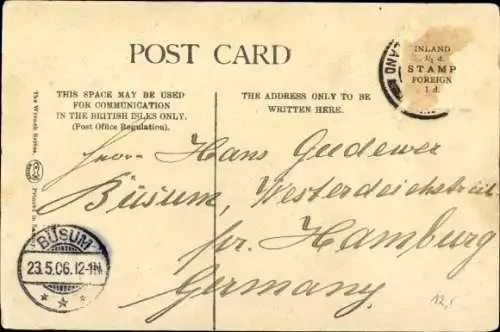 POST CARD
INLAND
½ d.
STAMP
FOREIGN
1 d.
AND
THIS SPACE MAY BE USED
FOR COMMUNICATION
IN THE BRITISH ISLES ONLY.
(Post Office Regulation).
THE ADDRESS ONLY TO BE
WRITTEN HERE.
The Wrench Series
Printed in
Herrn Hans
Büsum,
pr. Hamburg
Germany.
BÜSUM
23.5.06.12-1N.
12,-